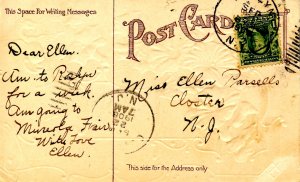 This Space For Writing Messages
POST CARD
Dear Ellen.
Am to
for a week.
Am going
to
Fair
With Love
Ellen.
Miss Ellen Parsells
Closter
N. J.
This side for the Address only